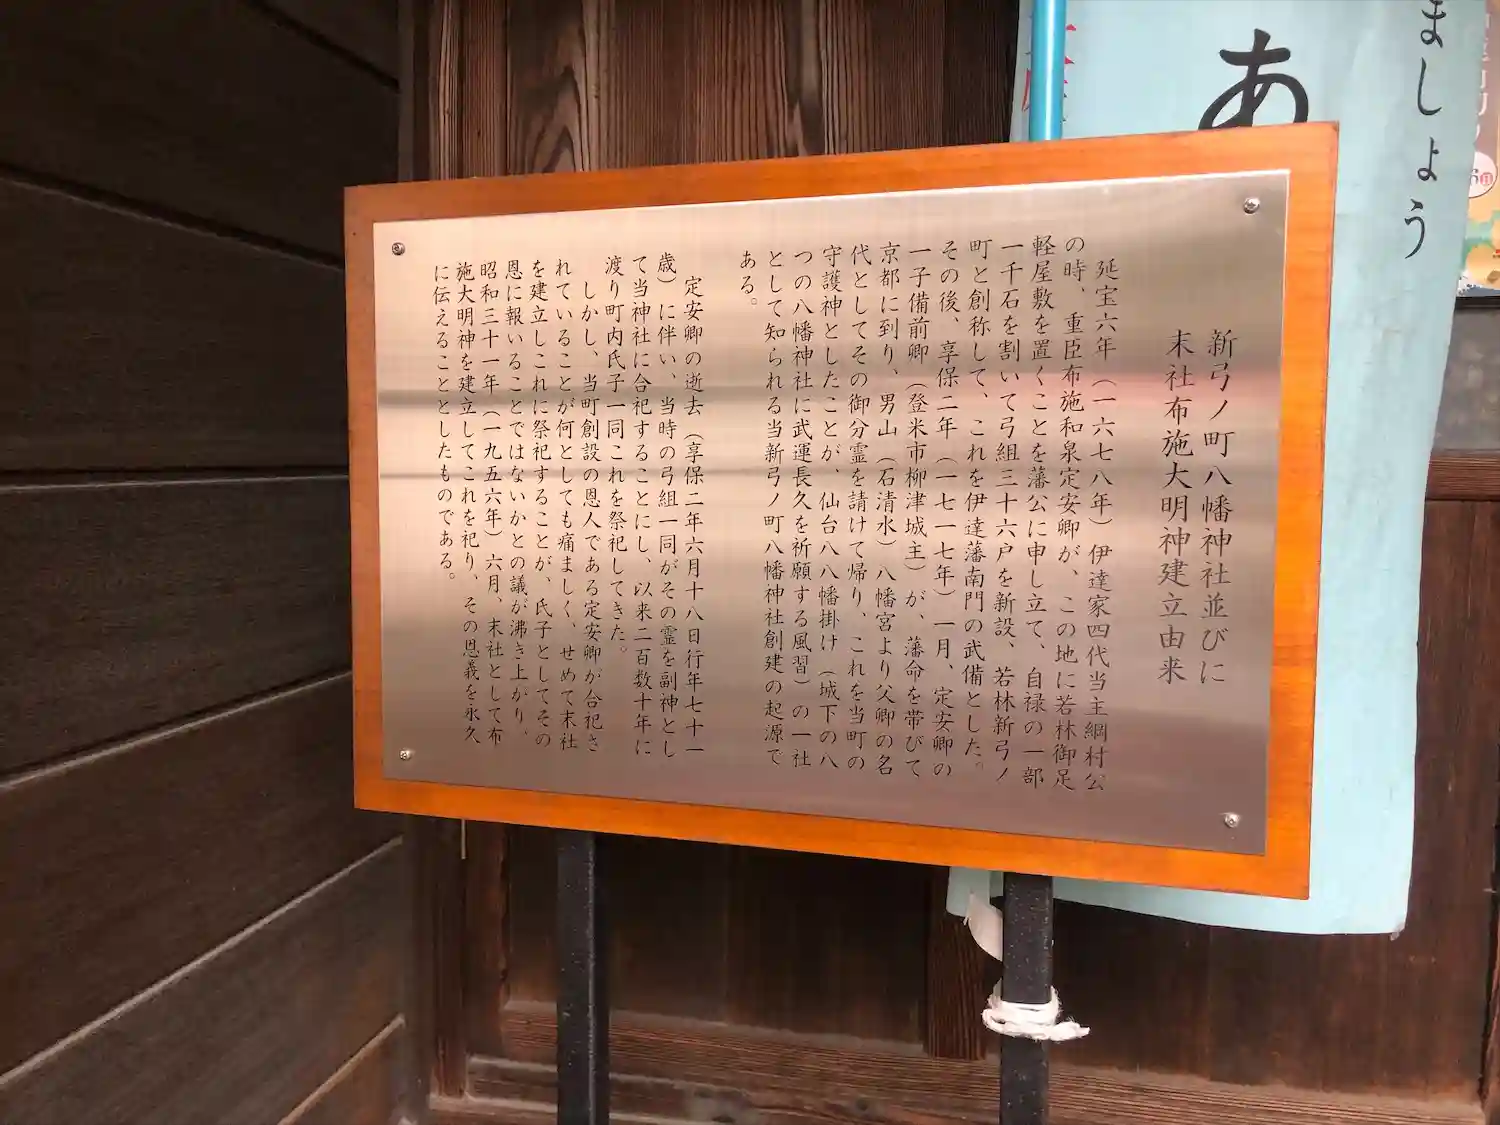 新弓ノ町八幡神社並びに
末社布施大明神建立由来
延宝六年（一六七八年）伊達家四代当主綱村公
の時、重臣布施和泉定安卿が、この地に若林御足
軽屋敷を置くことを藩公に申し立て、自禄の一部
一千石を割いて弓組三十六戸を新設、若林新弓ノ
町と創称して、これを伊達藩南門の武備とした。
その後、享保二年（一七一七年）一月、定安卿の
一子備前卿（登米市柳津城主）が、藩命を帯びて
京都に到り、男山（石清水）八幡宮より父卿の名
代としてその御分霊を請けて帰り、これを当町の
守護神としたことが、仙台八八幡掛け（城下の八
つの八幡神社に武運長久を祈願する風習）の一社
として知られる当新弓ノ町八幡神社創建の起源で
ある。
定安卿の逝去（享保二年六月十八日行年七十一
歳）に伴い、当時の弓組一同がその霊を副神とし
て当神社に合祀することにし、以来二百数十年に
渡り町内氏子一同これを祭祀してきた。
しかし、当町創設の恩人である定安卿が合祀さ
れていることが何としても痛ましく、せめて末社
を建立しこれに祭祀することが、氏子としてその
恩に報いることではないかとの議が沸き上がり、
昭和三十一年（一九五六年）六月、末社として布
施大明神を建立してこれを祀り、その恩義を永久
に伝えることとしたものである。
ましょう
あ